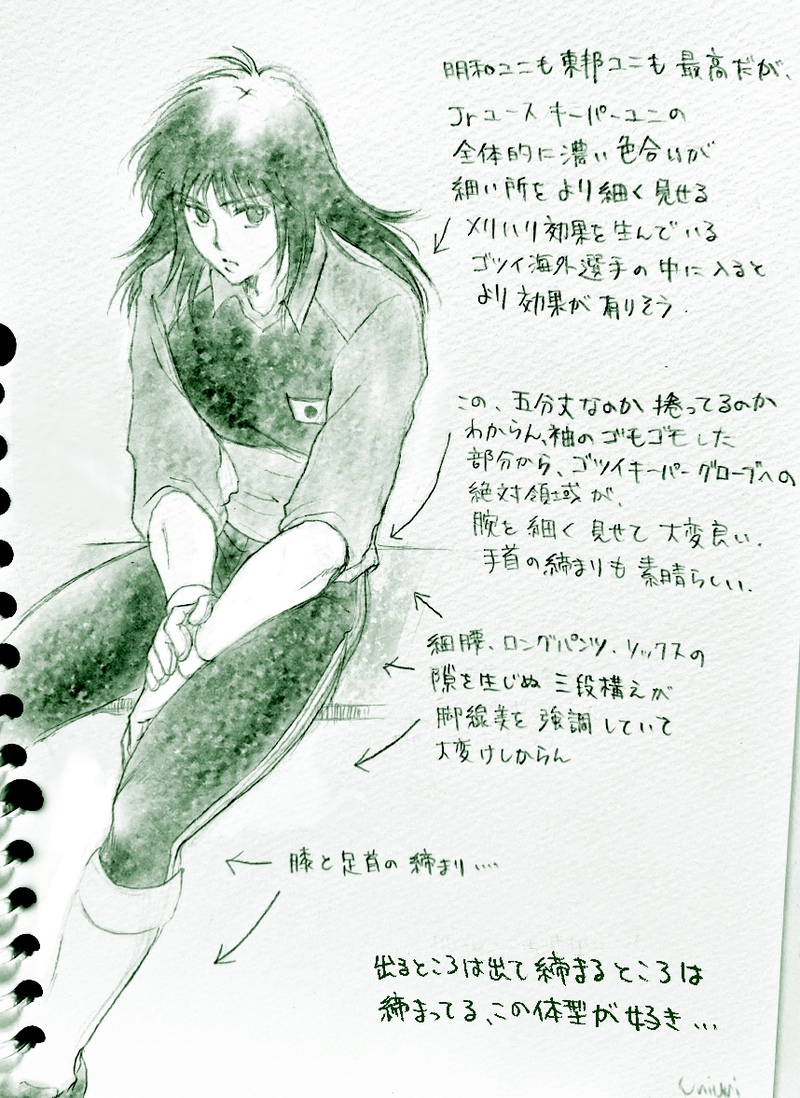 明和ユニも東邦ユニも最高だが、
Jrユース キーパーユニの
全体的に濃い色合いが
細い所をより細く見せる
メリハリ効果を生んでいる
ゴツイ海外選手の中に入ると
より効果が有りそう.
この、五分丈なのか捲ってるのか
わからん、袖のゴモゴモした
部分から、ゴツイキーパーグローブへの
絶対領域が、
腕を細く見せて大変良い.
手首の締まりも素晴らしい.
細腰、ロングパンツ、ソックスの
隙を生じぬ三段構えが
脚線美を強調していて
大変けしからん
膝と足首の締まり....
出るところは出て締まるところは
締まってる、この体型が好き...
Uniuni